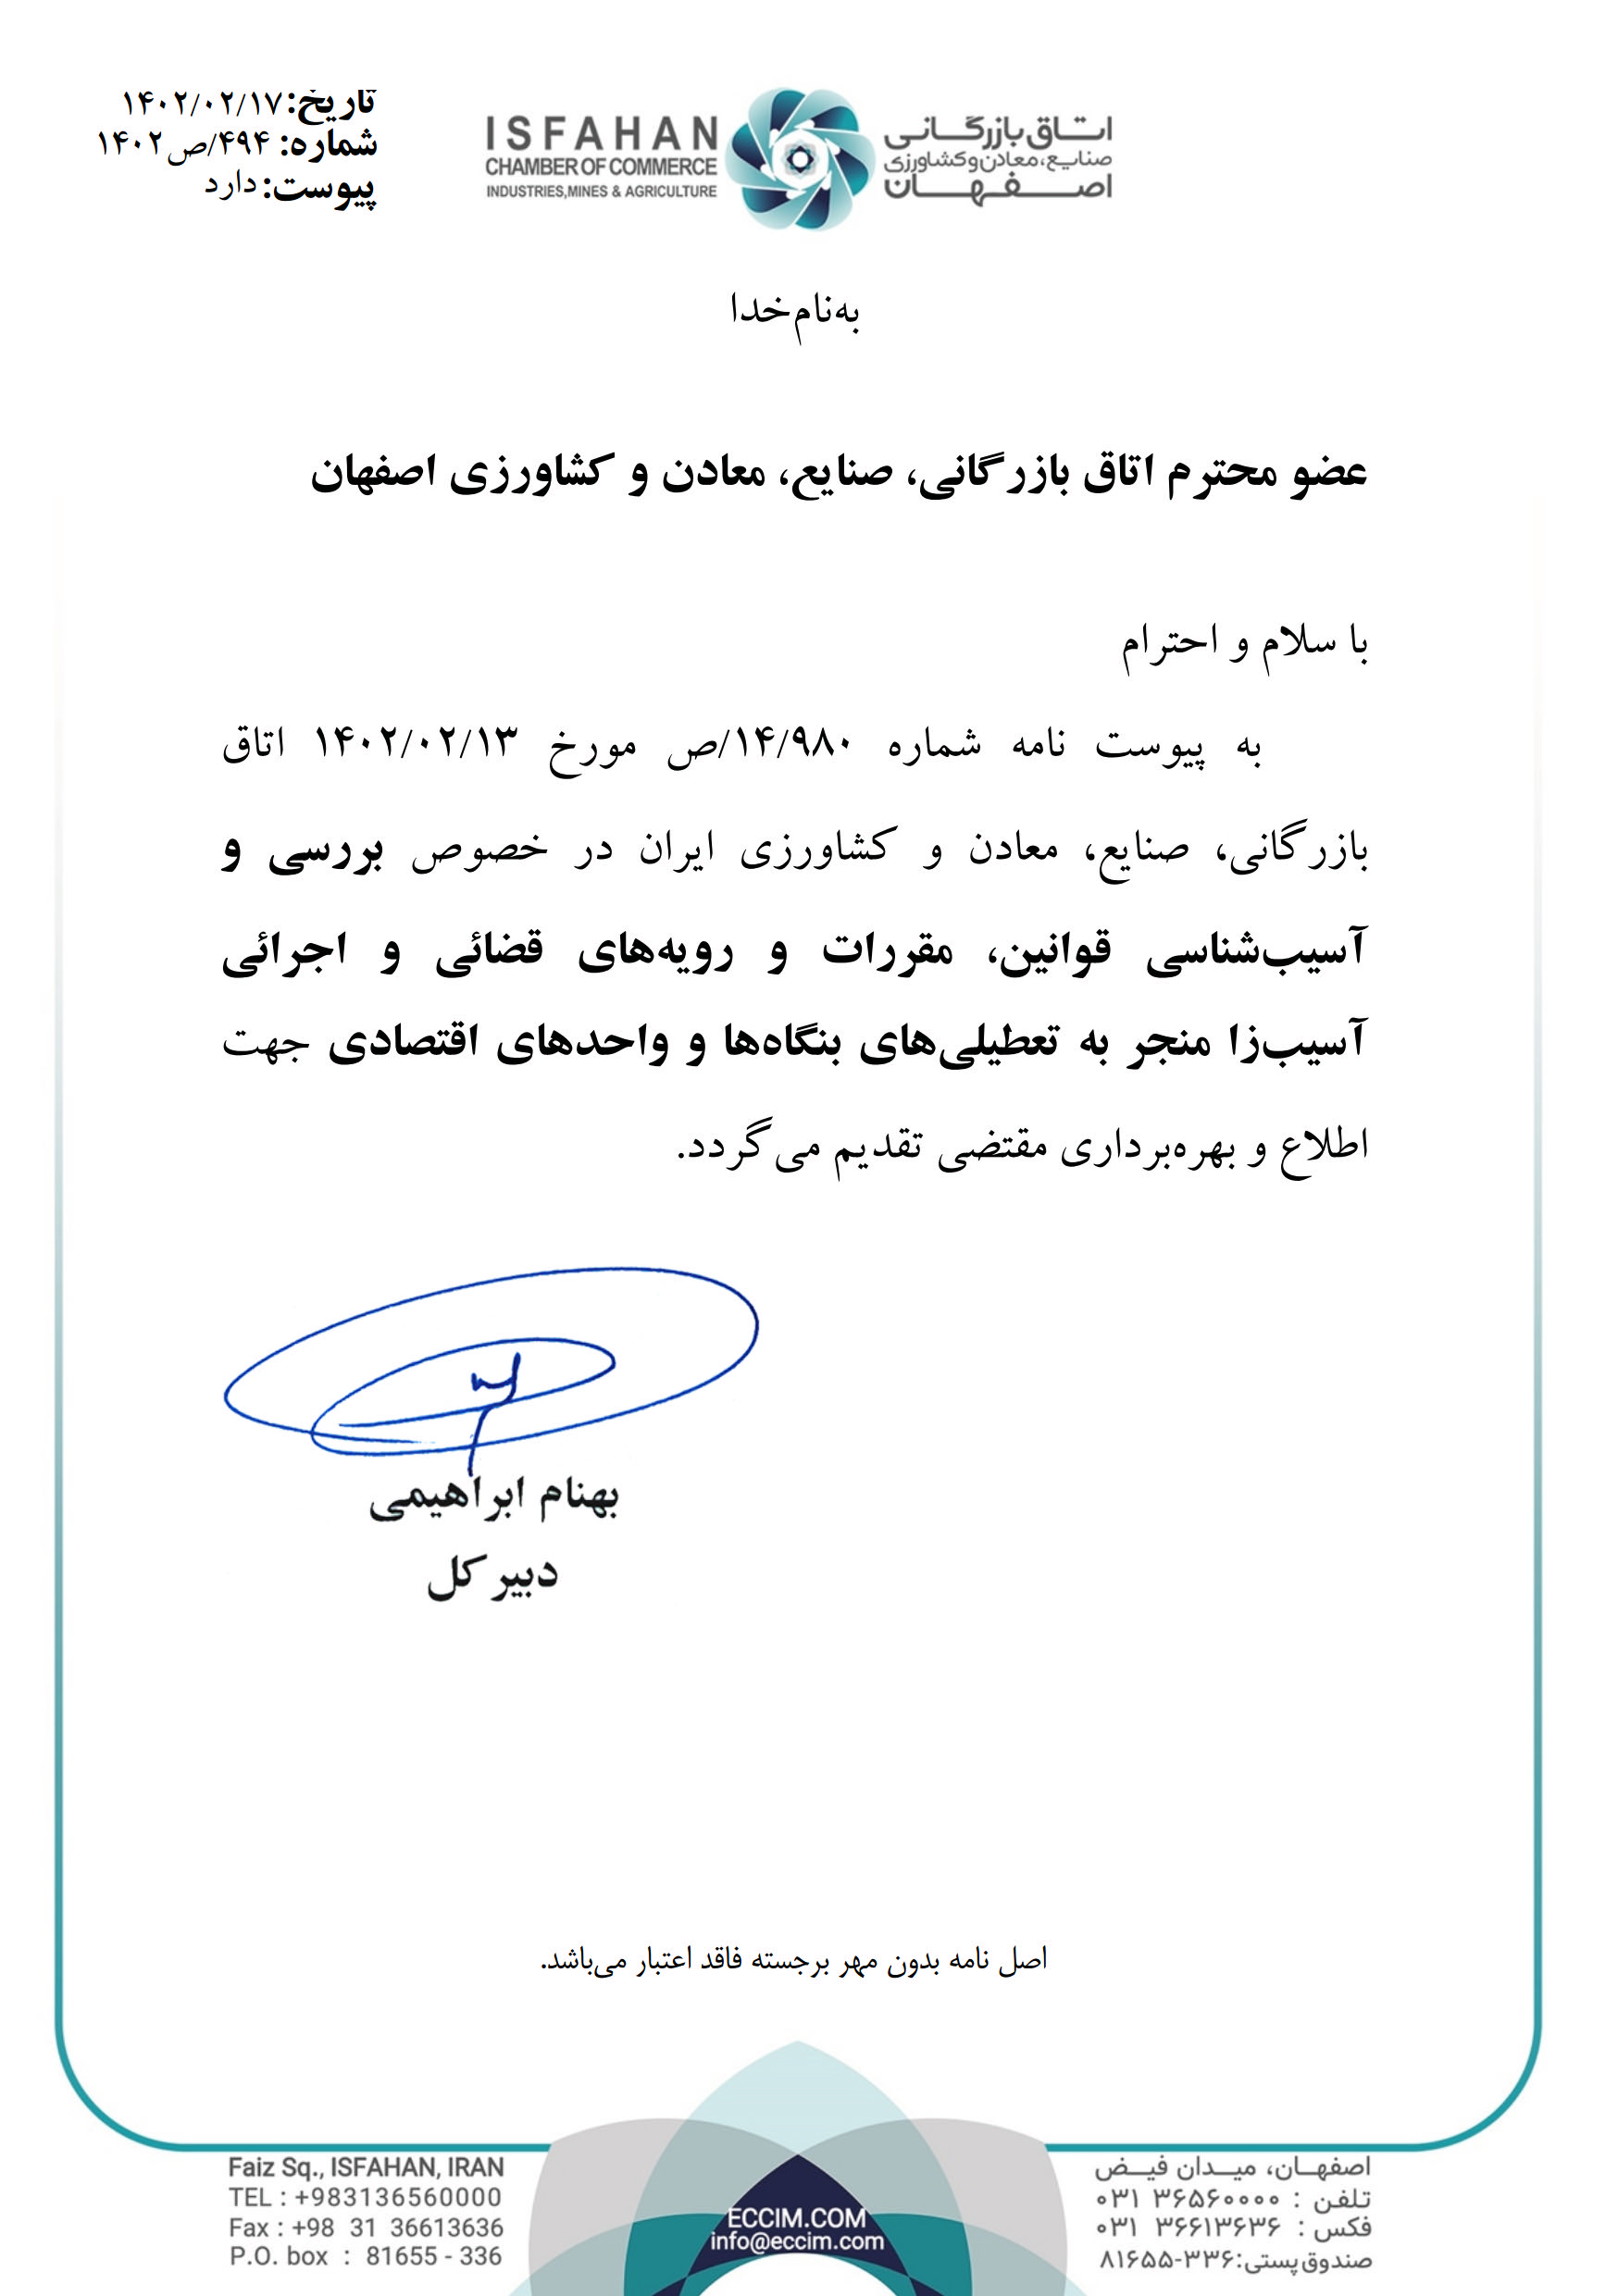 تاریخ: ۱۴۰۲/۰۲/۱۷
شماره: ۴۹۴/ص۱۴۰۲
پیوست: دارد
ISFAHAN
CHAMBER OF COMMERCE
INDUSTRIES,MINES & AGRICULTURE
اتــاق بازرگــانــی
صنایع، معادن و کشاورزی
اصــفــهــان
به‌نام‌خدا
عضو محترم اتاق بازرگانی، صنایع، معادن و کشاورزی اصفهان
با سلام و احترام
به پیوست نامه شماره ۱۴/۹۸۰/ص مورخ ۱۴۰۲/۰۲/۱۳ اتاق
بازرگانی، صنایع، معادن و کشاورزی ایران در خصوص بررسی و
آسیب‌شناسی قوانین، مقررات و رویه‌های قضائی و اجرائی
آسیب‌زا منجر به تعطیلی‌های بنگاه‌ها و واحدهای اقتصادی جهت
اطلاع و بهره‌برداری مقتضی تقدیم می‌گردد.
بهنام ابراهیمی
دبیر کل
اصل نامه بدون مهر برجسته فاقد اعتبار می‌باشد.
Faiz Sq., ISFAHAN, IRAN
TEL : +983136560000
Fax : +98 31 36613636
P.O. box : 81655 - 336
ECCIM.COM
info@eccim.com
اصفهــان، میــدان فیــض
تلفن : ۰۳۱ ۳۶۵۶۰۰۰۰
فکس : ۰۳۱ ۳۶۶۱۳۶۳۶
صندوق پستی: ۸۱۶۵۵-۳۳۶